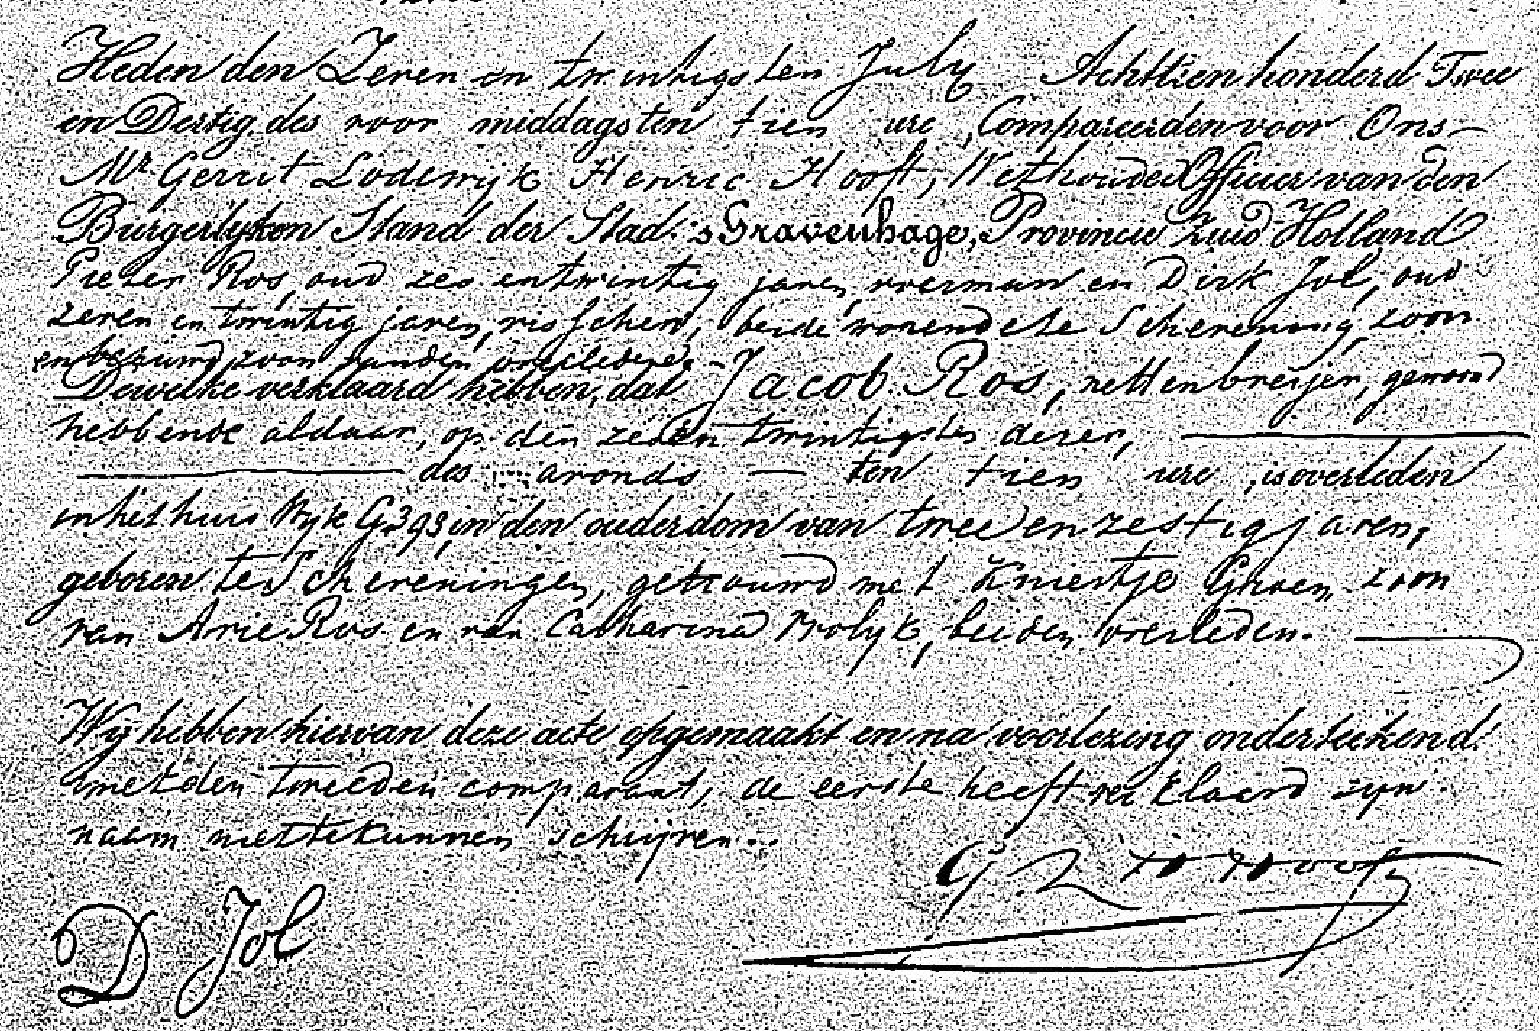 Heden den Zeven en twintigsten July Achttien honderd Twee
en Dertig des voor middags ten tien ure, Compareerden voor Ons
Mr. Gerrit Lodewyk Henric Hooft, Wethouder Officier van den
Burgerlyken Stand der Stad 's Gravenhage, Provincie Zuid-Holland
Pieter Ros, oud zes en twintig jaren, veerman en Dirk Jol, oud
zeven en twintig jaren, visscher, beide wonende te Schevening, zoon
en behuwd zoon van den overledene -
Dewelke verklaard hebben, dat Jacob Ros, nettenbreijer, gewoond
hebbende aldaar, op den zeven twintigsten dezer,
des avonds ten tien ure, is overleden
in het huis Wyk G. 393, in den ouderdom van twee en zestig jaren,
geboren te Scheveningen, getrouwd met Kniertje Groen zoon
van Arie Ros en van Catharina Vrolyk, beiden overleden.
Wij hebben hiervan deze acte opgemaakt en na voorlezing onderteekend
met den tweeden comparant, de eerste heeft verklaard zyn
naam niet te kunnen schrijven..
G L H Hooft
D Jol